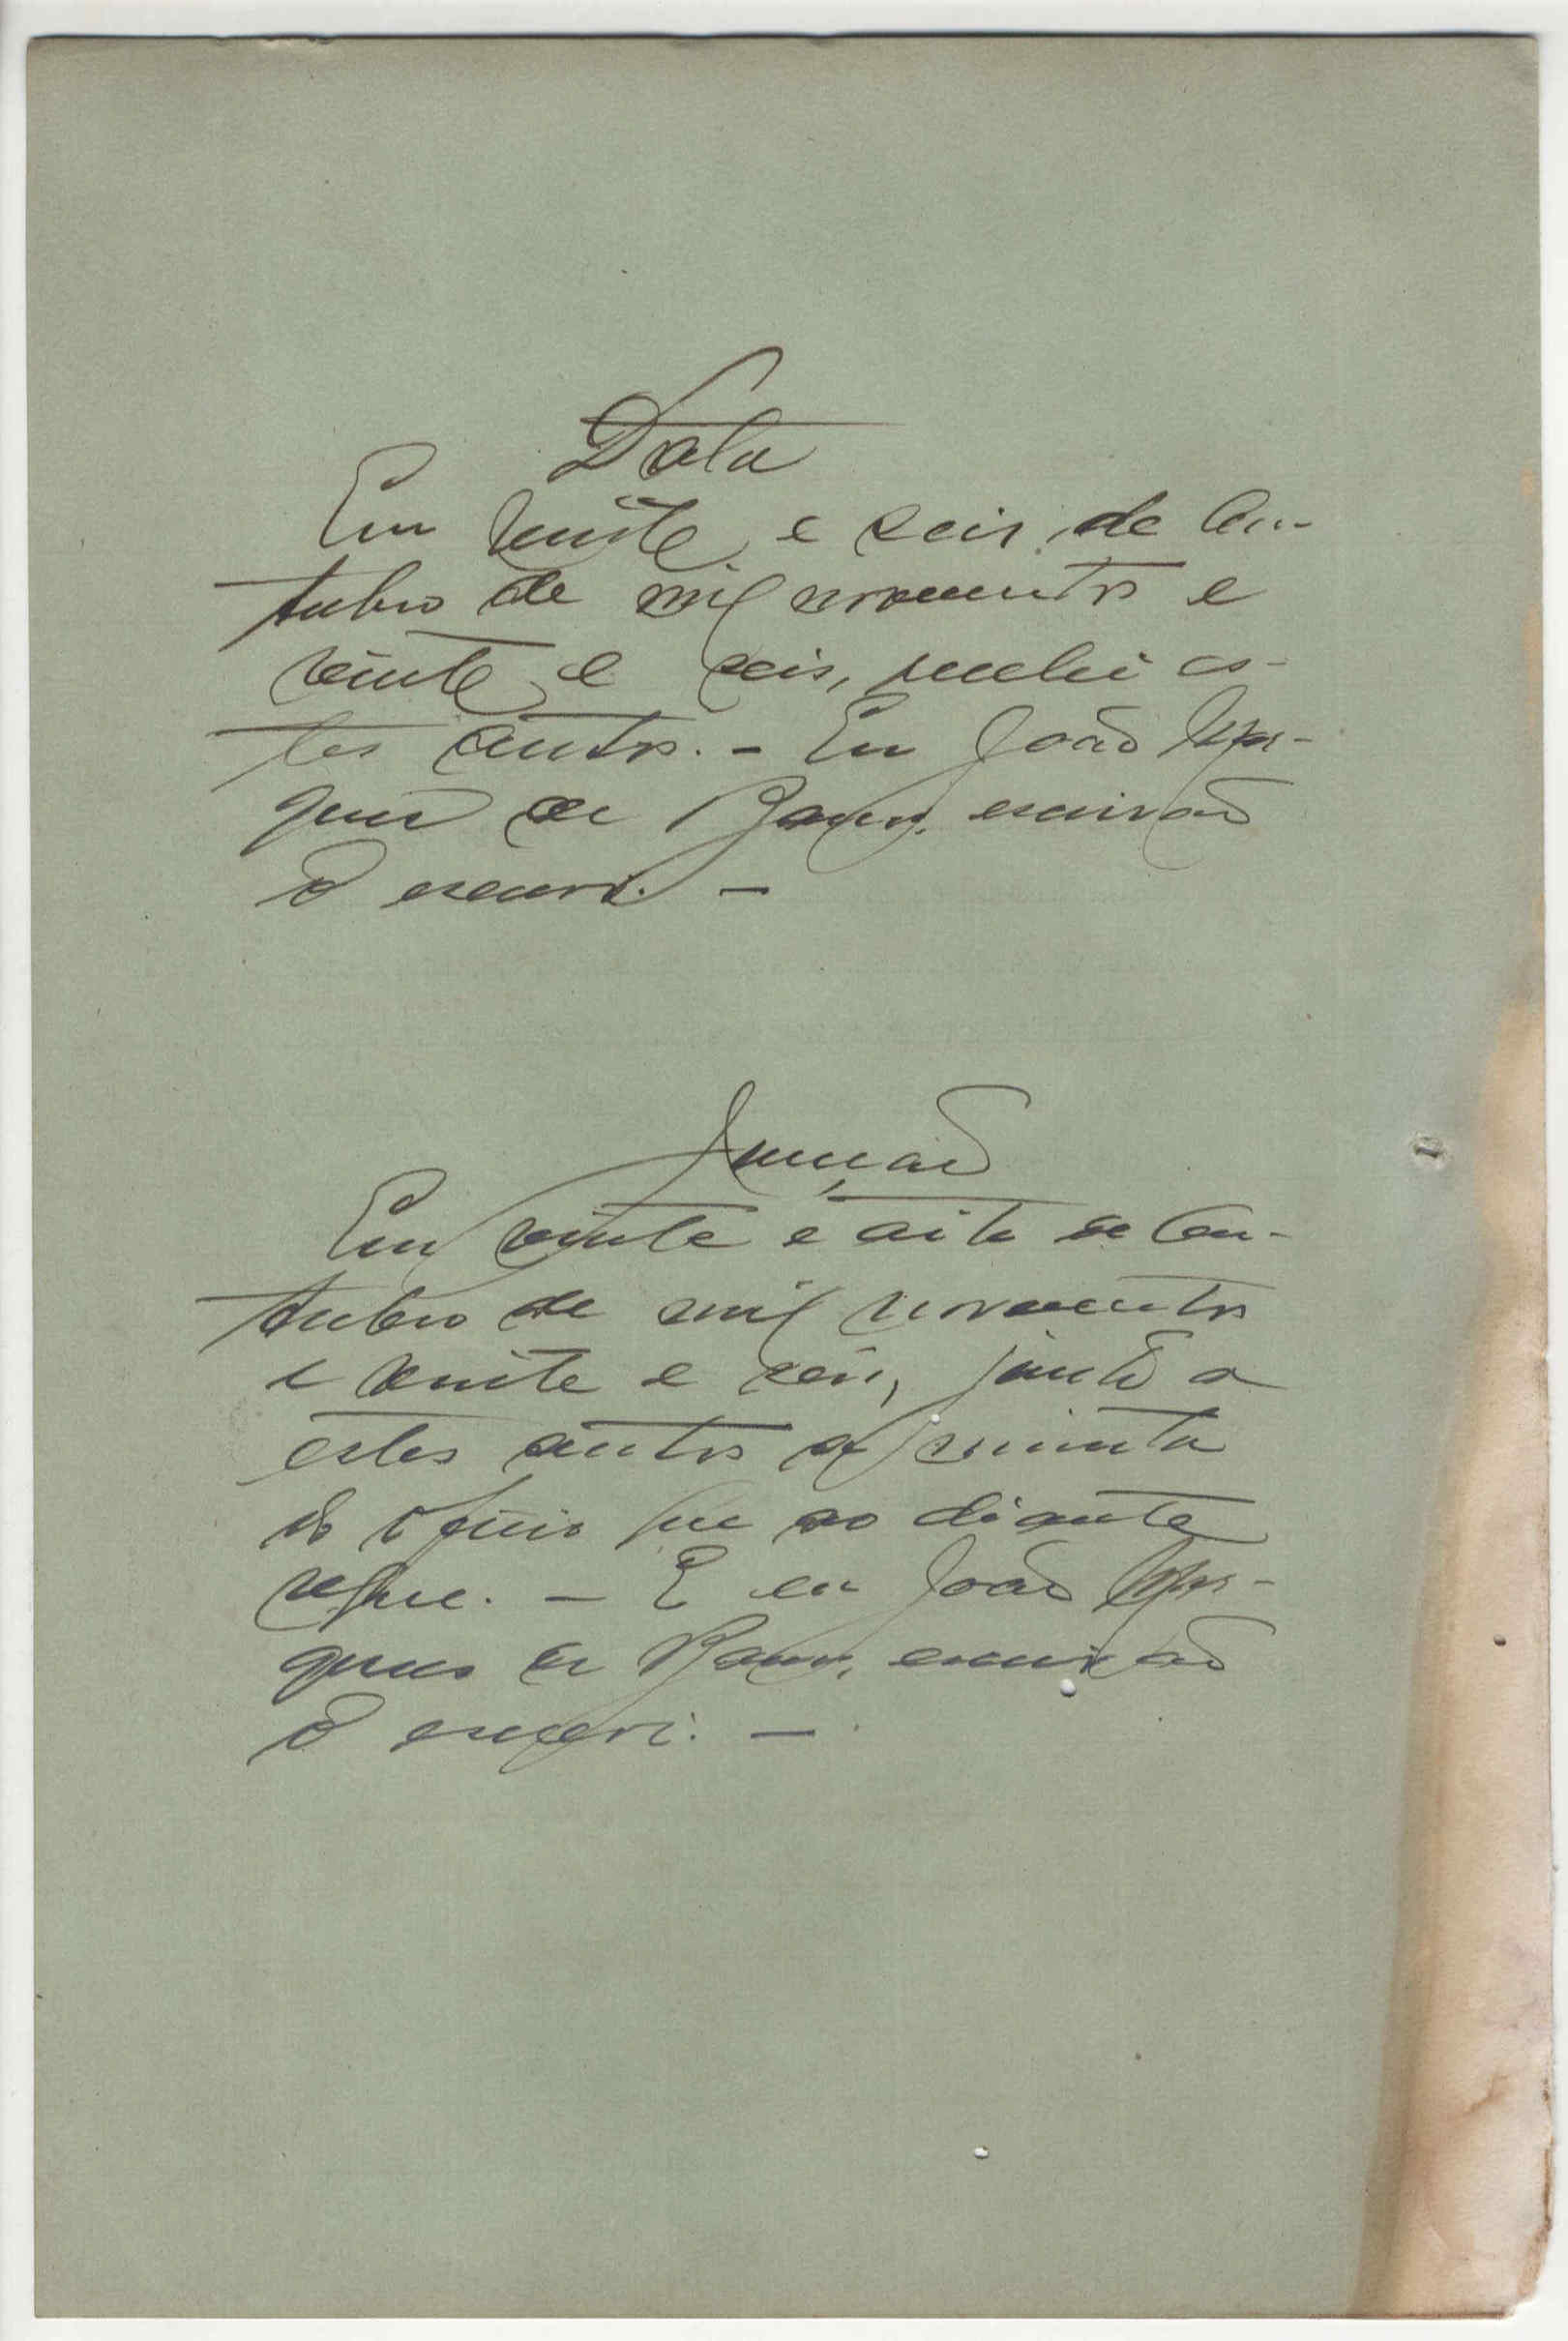 Data
Em vinte e seis de Ou-
tubro de mil novecentos e
vinte e seis, recebi es-
tes autos. - Eu João
de escrivão
o escrevi. -
Juncção
Em vinte e oito de Ou-
tubro de mil novecentos
e vinte e seis, junto a
estes autos a minuta
do officio que ao diante
segue. - E eu João
de escrivão
o escrevi. -